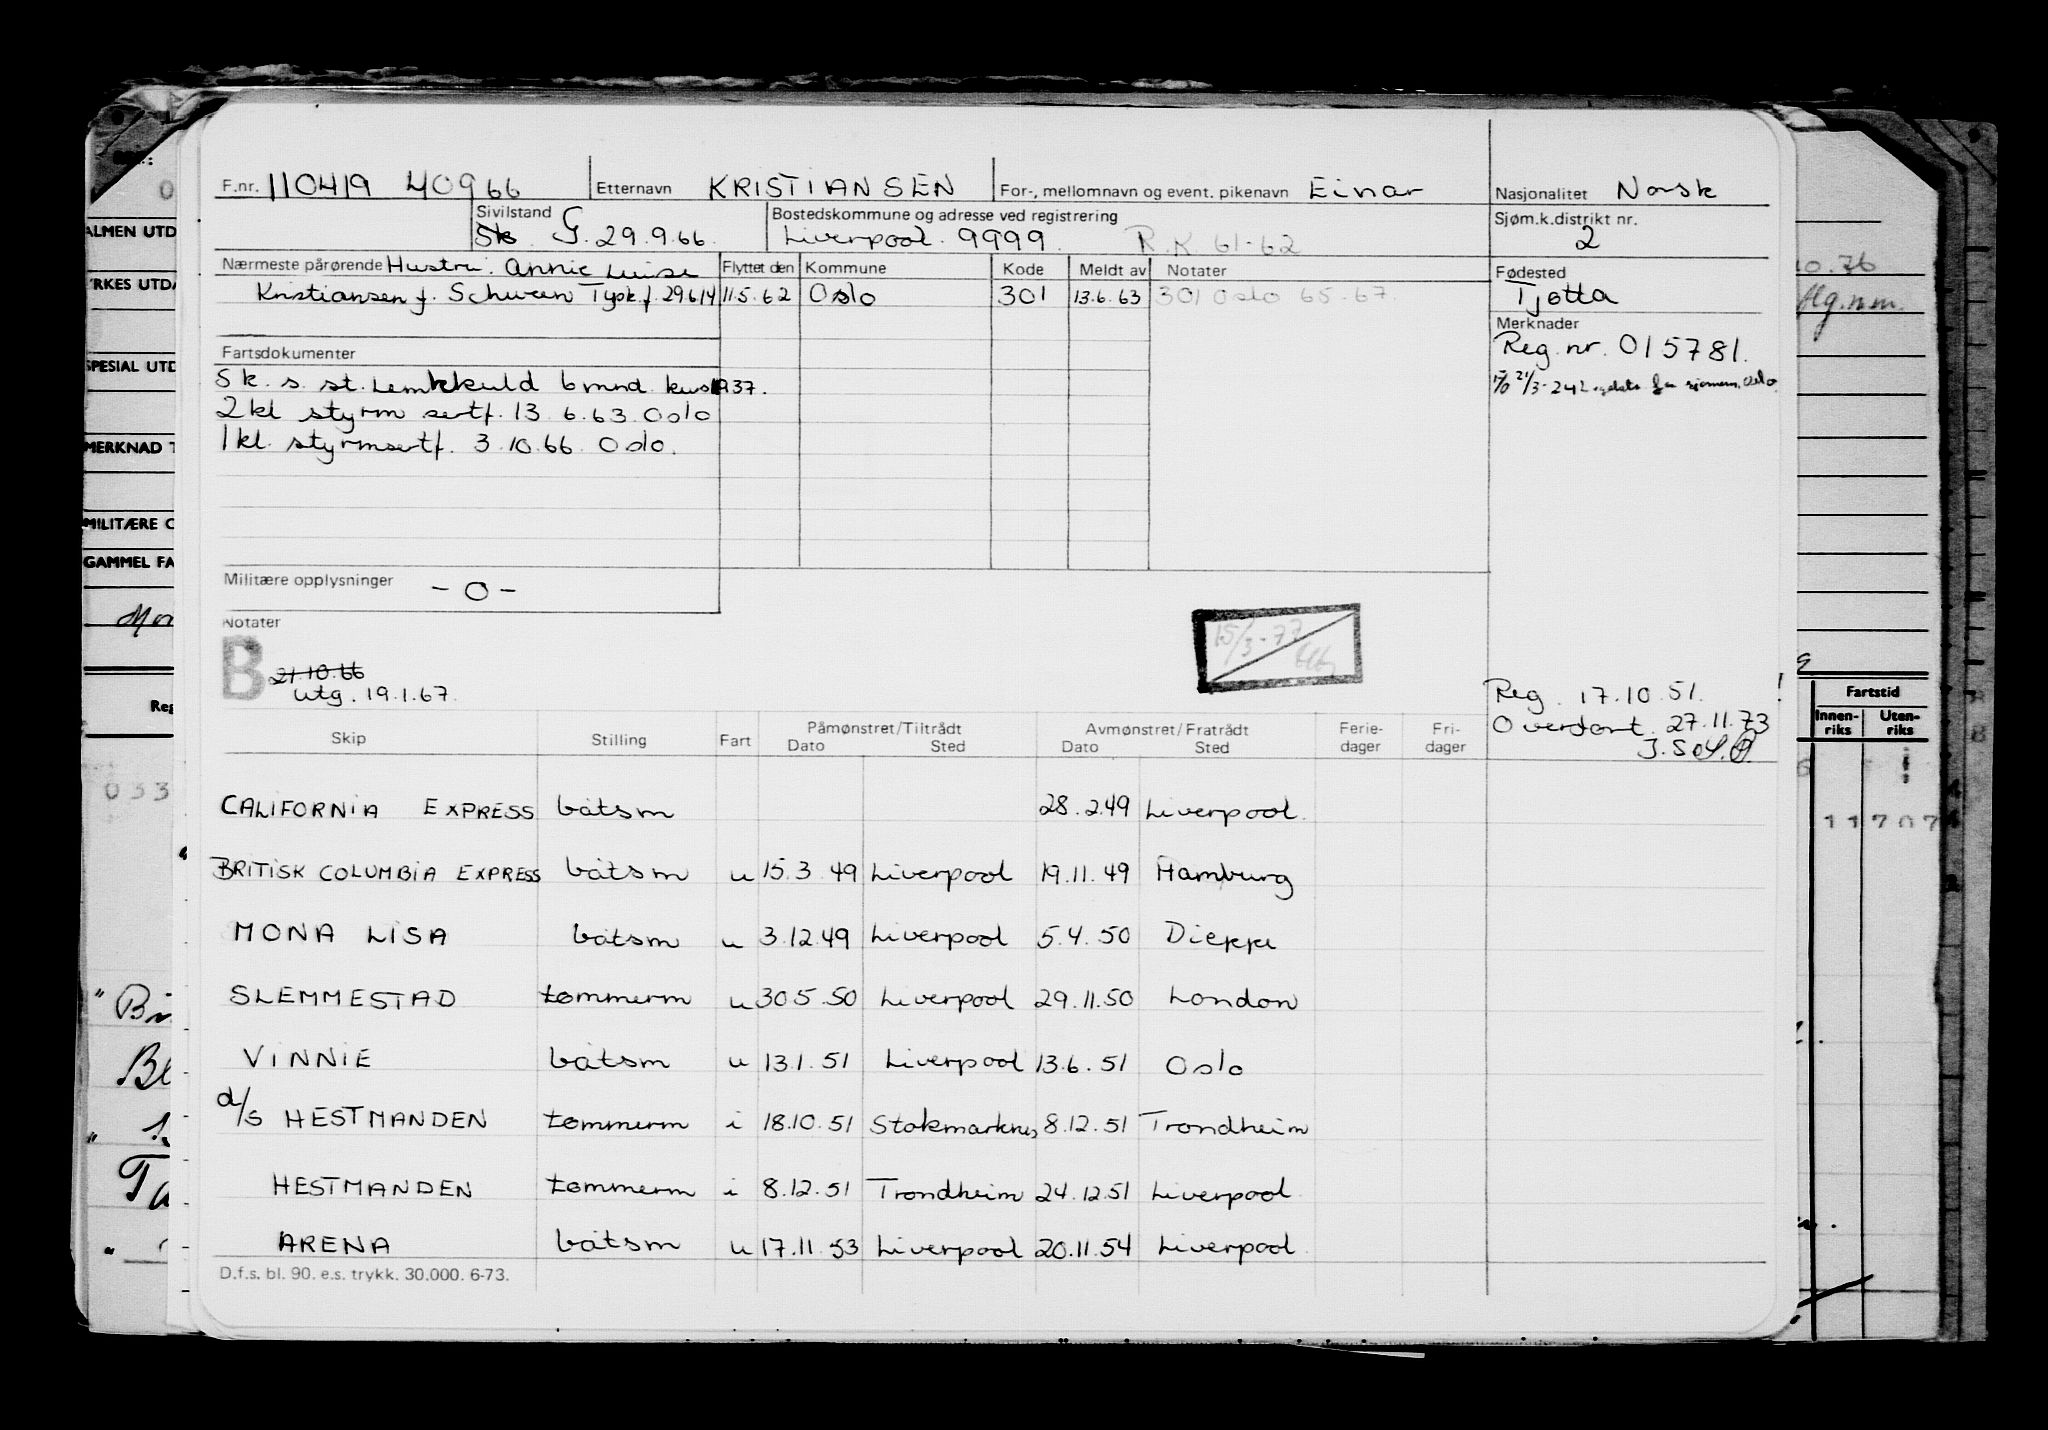 F.nr. 110419 40966 Etternavn KRISTIANSEN For-, mellomnavn og event. pikenavn Einar Nasjonalitet Norsk
Sivilstand Sk G. 29.9.66. Bostedskommune og adresse ved registrering Liverpool. 9999. R.K. 61-62 Sjøm.k.distrikt nr. 2
Nærmeste pårørende Hustru. Annie Luise Flyttet den Kommune Kode Meldt av Notater Fødested
Kristiansen f. Schween Tysk f. 29.6.14 11.5.62 Oslo 301 13.6.63 301 Oslo 65-67. Tjøtta
Merknader
Reg. nr. 015781.
Fartsdokumenter
Sk. s. st. Lemkuld 6 mnd. kurs 1937.
2 kl styrm sertf. 13.6.63 Oslo
1 kl. styrmsertf. 3.10.66 Oslo.
Militære opplysninger - 0 -
Notater
B 21.10.66
utg. 19.1.67.
15/3-77
Reg. 17.10.51.
Overført 27.11.73
Skip Stilling Fart Påmønstret/Tiltrådt Dato Sted Avmønstret/Fratrådt Dato Sted Ferie-dager Fri-dager
CALIFORNIA EXPRESS båtsm 28.2.49 Liverpool.
BRITISK COLUMBIA EXPRESS båtsm u 15.3.49 Liverpool 19.11.49 Hamburg
MONA LISA båtsm u 3.12.49 Liverpool 5.4.50 Dieppe
SLEMMESTAD tømmerm u 30.5.50 Liverpool 29.11.50 London
VINNIE båtsm u 13.1.51 Liverpool 13.6.51 Oslo
d/s HESTMANDEN tømmerm i 18.10.51 Stokmarknes 8.12.51 Trondheim
HESTMANDEN tømmerm i 8.12.51 Trondheim 24.12.51 Liverpool
ARENA båtsm u 17.11.53 Liverpool 20.11.54 Liverpool.
D.f.s. bl. 90. e.s. trykk. 30.000. 6-73.
ALMEN UTD
SPESIAL UTD
MERKNAD T
MILITÆRE O
GAMMEL FA
Reg
033
Fartstid
Innen-riks Uten-riks
11707